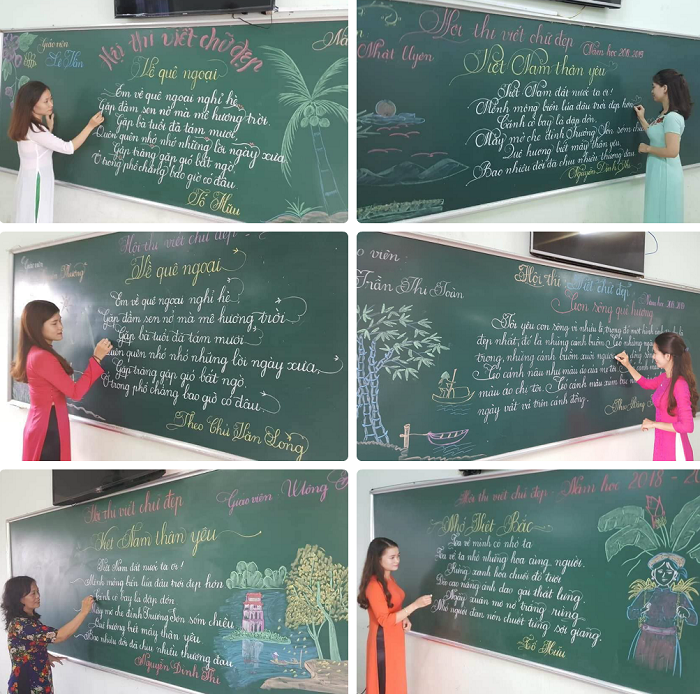 Giáo viên
Hội thi viết chữ đẹp
Về quê ngoại
Em về quê ngoại nghỉ hè
Gặp đầm sen nở mà mê hương trời.
Gặp bà tuổi đã tám mươi
Quên quên nhớ nhớ những lời ngày xưa
Gặp trăng gặp gió bất ngờ
Ở trong phố chẳng bao giờ có đâu
Tố Hữu
Hội thi viết chữ đẹp
Năm học 2018-2019
Nhật Uyên
Việt Nam thân yêu
Việt Nam đất nước ta ơi!
Mênh mông biển lúa đâu trời đẹp hơn
Cánh cò bay lả dập dờn
Mây mờ che đỉnh Trường Sơn sớm
Quê hương biết mấy thân yêu
Bao nhiêu đời đã chịu nhiều thương đau
Nguyễn Đình
Hội thi viết chữ đẹp
Giáo viên
Phương
Về quê ngoại
Em về quê ngoại nghỉ hè
Gặp đầm sen nở mà mê hương trời
Gặp bà tuổi đã tám mươi
Quên quên nhớ nhớ những lời ngày xưa
Gặp trăng gặp gió bất ngờ
Ở trong phố chẳng bao giờ có đâu
Theo Chử Văn Long
viên
Trần Thu Toàn
Hội thi viết chữ đẹp
Năm học
Con sông quê hương
Tôi yêu con sông vì nhiều lẽ, trong đó một hình ảnh
đẹp nhất, đó là những cánh buồm. Có những ngày
trong, những cánh buồm xuôi ngược
Có cánh nâu như màu áo của mẹ tôi.
màu áo chị tôi. Có cánh màu xám
ngày vất vả trên cánh đồng.
Theo Băng
Hội thi viết chữ đẹp
Giáo viên Uông
Việt Nam thân yêu
Việt Nam đất nước ta ơi!
Mênh mông biển lúa đâu trời đẹp hơn
cò bay lả dập dờn
Mây mờ che đỉnh Trường Sơn sớm chiều
Quê hương biết mấy thân yêu
Bao nhiêu đời đã chịu nhiều thương đau
Nguyễn Đình Thi
Hội thi viết chữ đẹp Năm học 2018 - 20
Nhớ Việt Bắc
Ta về mình có nhớ ta
Ta về ta nhớ những hoa cùng người.
Rừng xanh hoa chuối đỏ tươi
Đèo cao nắng ánh dao gài thắt lưng.
Ngày xuân mơ nở trắng rừng
Nhớ người đan nón chuốt từng sợi giang.
Tố Hữu